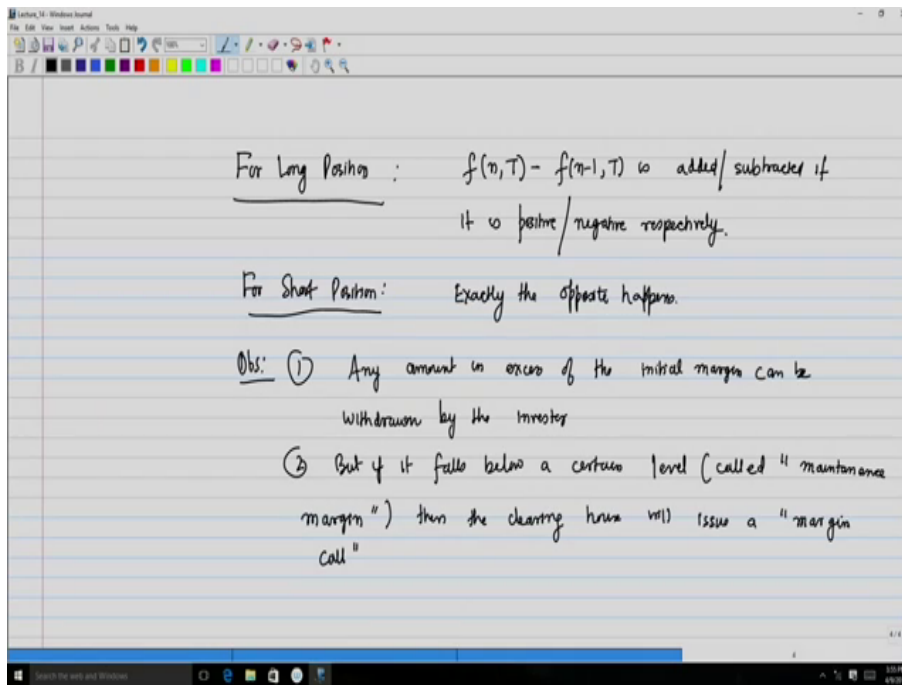 Lecture_14 - Windows Journal
File Edit View Insert Actions Tools Help
B I
For Long Position : f(n,T) - f(n-1,T) is added/subtracted if
it is positive/negative respectively.
For Short Position: Exactly the opposite happens.
Obs: ① Any amount in excess of the initial margin can be
withdrawn by the investor
② But if it falls below a certain level (called "maintanance
margin") then the clearing house will issue a "margin
call"
4/4
Search the web and Windows